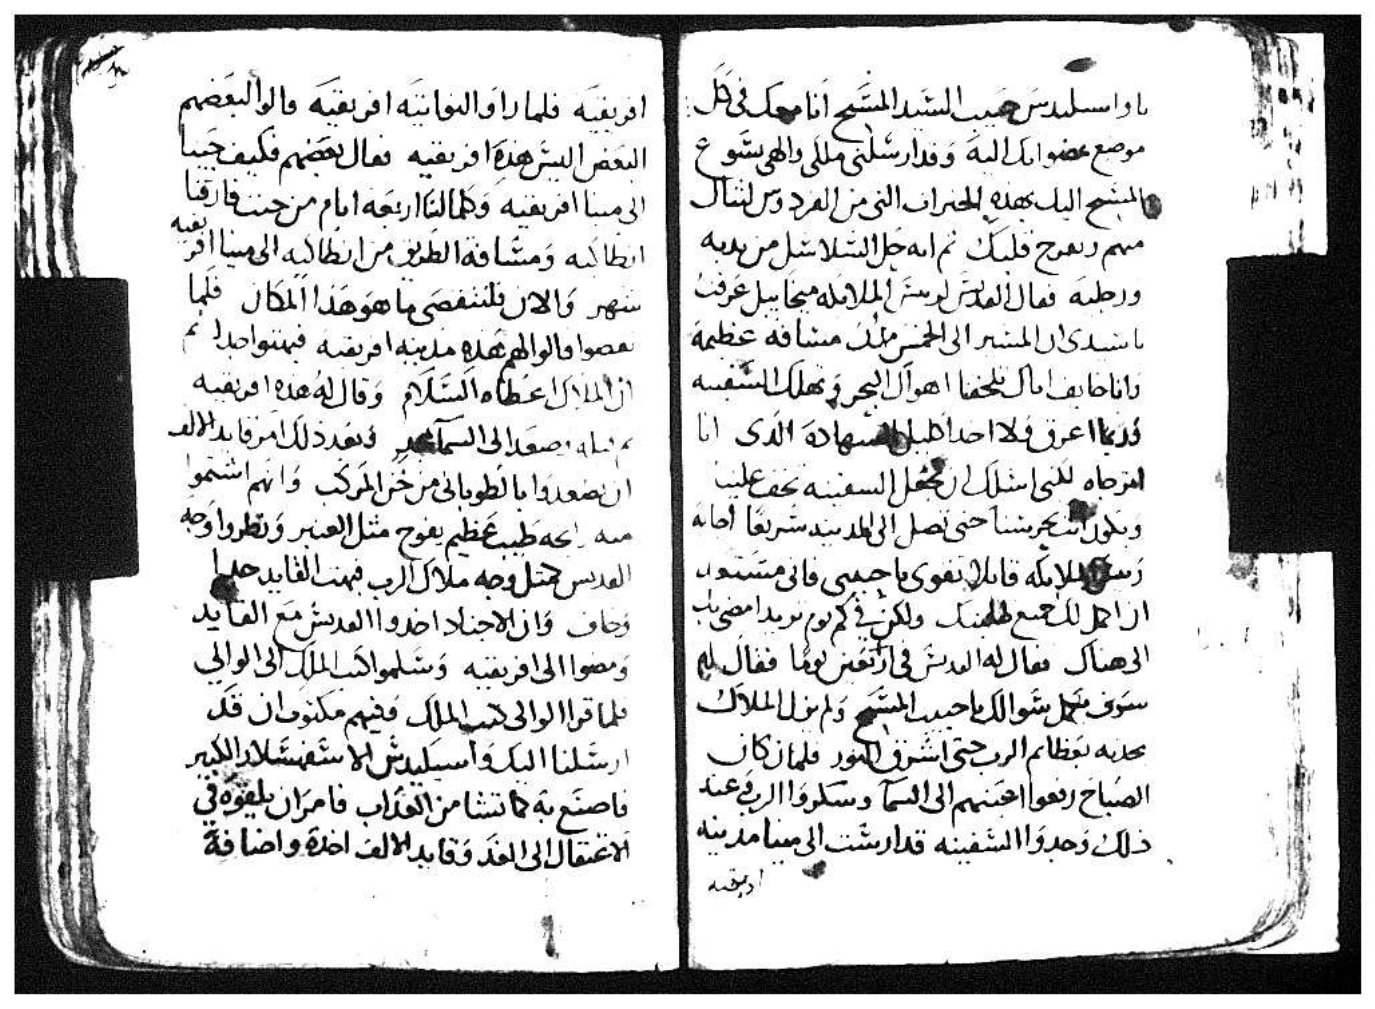 يا واسيليدس حبيب السيد المسيح انا معك في كل
موضع يمضوا بك اليه وقد ارسلني ملكي والهي يسوع
المسيح اليك بهذه الخيرات التي من الفردوس لتنال
منهم ويفرح قلبك ثم انه حل السلاسل من يديه
ورجليه فقال القديس لرييس الملايكه ميخاييل عرفت
يا سيدي ان المسير الى الخمس مدن مسافه عظيمة
وانا خايف ان تلحقنا اهوال البحر وتهلك السفينه
فربما اعرق فلا احد اكليل الشهاده الذى انا
اترجاه لكني اسلك ان تجعل السفينه تخف علينا
وبكون تحرسنا حتى نصل الى المدينه سريعا اجابه
رييس الملايكه قايلا تقوى يا حبيبي فانى مستعد
ان اكمل لك جميع طلبتك ولكن في كم يوم تريد امضى بك
الى هناك فقال له القديس فى اربعين يوما فقال له
سوف يكمل سوالك يا حبيب المسيح ولم يزل الملاك
يحدثه بعظايم الرب حتى اشرق النور فلما ان كان
الصباح رفعوا اعينهم الى السما وشكروا الرب فعند
ذلك وجدوا السفينه قد ارست الى مينا مدينه
افريقيه
افريقيه فلما راو النواتيه افريقيه قالوا لبعضهم
البعض اليس هذه افريقيه فقال بعضهم فكيف جينا
الى مينا افريقيه وكمالنا اربعه ايام من حيت فارقنا
انطاكيه ومسافة الطريق من انطاكيه الى مينا افر
يقيه
شهر والان فلنتفصى ما هو هذا المكان فلما
تفصوا قالوا لهم هذه مدينه افريقيه فبهتوا جدا ثم
ان الملاك اعطاه السلام وقال له هذه افريقيه
ثم قبله وصعد الى السما بمجد وبعد ذلك امر قايد الالف
ان يصعدوا بالطوبانى من خن المركب وانهم اشتموا
منه رايحه طيب عظيم يفوح مثل العنبر ونظروا وجه
القديس مثل وجه ملاك الرب فبهت القايد جدا
وخاف وان الاجناد اخدوا القديس مع القايد
ومضوا الى افريقيه وسلموا كتب الملك الى الوالي
فلما قرا الوالى كتب الملك وفيهم مكتوب ان قد
ارسلنا اليك واسيليدس الاسفهسلار الكبير
فاصنع به كما تشا من العذاب فامر ان يلقوه في
الاعتقال الى الغد وقايد الالف اخده واضافه